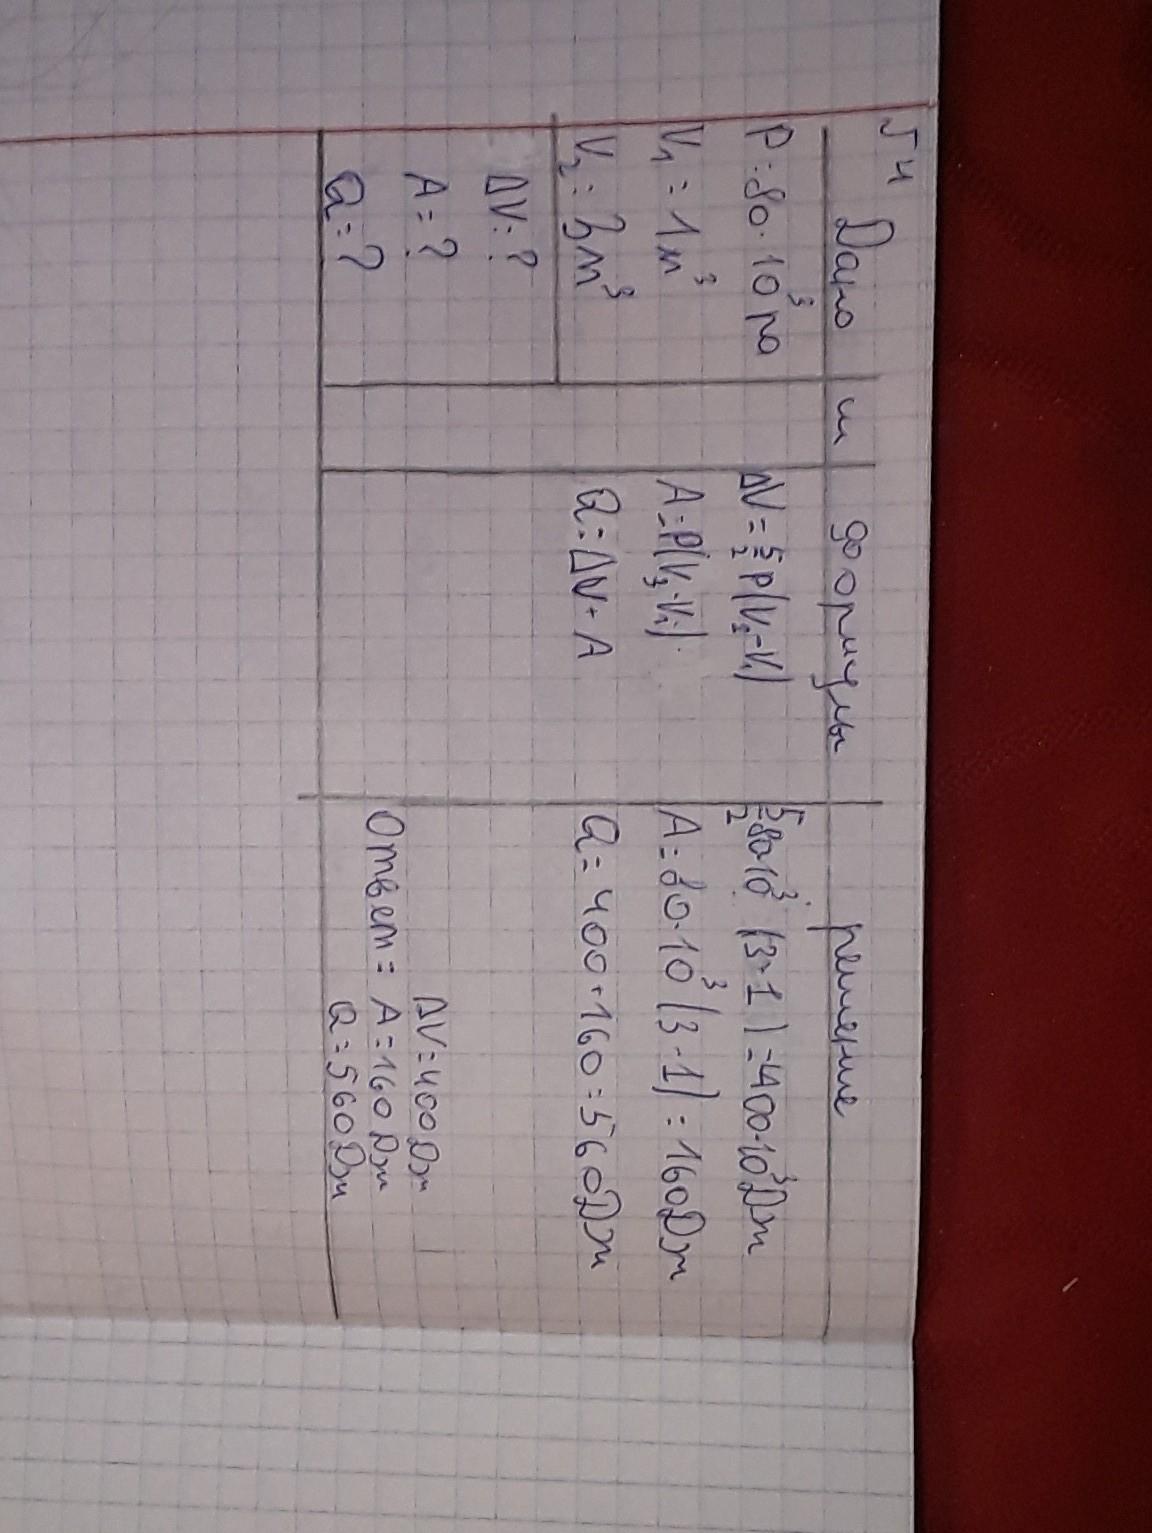 √4
Дано
си
формулы
решение
P = 80·10³ Па
V₁ = 1м³
V₂ = 3м³
ΔV = ?
A = ?
Q = ?
ΔV = 5/2 P(V₂-V₁)
A = P(V₂-V₁)
Q = ΔV + A
5/2 80·10³ (3-1) = 400·10³Дж
A = 80·10³ (3-1) = 160Дж
Q = 400+160 = 560Дж
ΔV = 400Дж
Ответ = A = 160Дж
Q = 560Дж